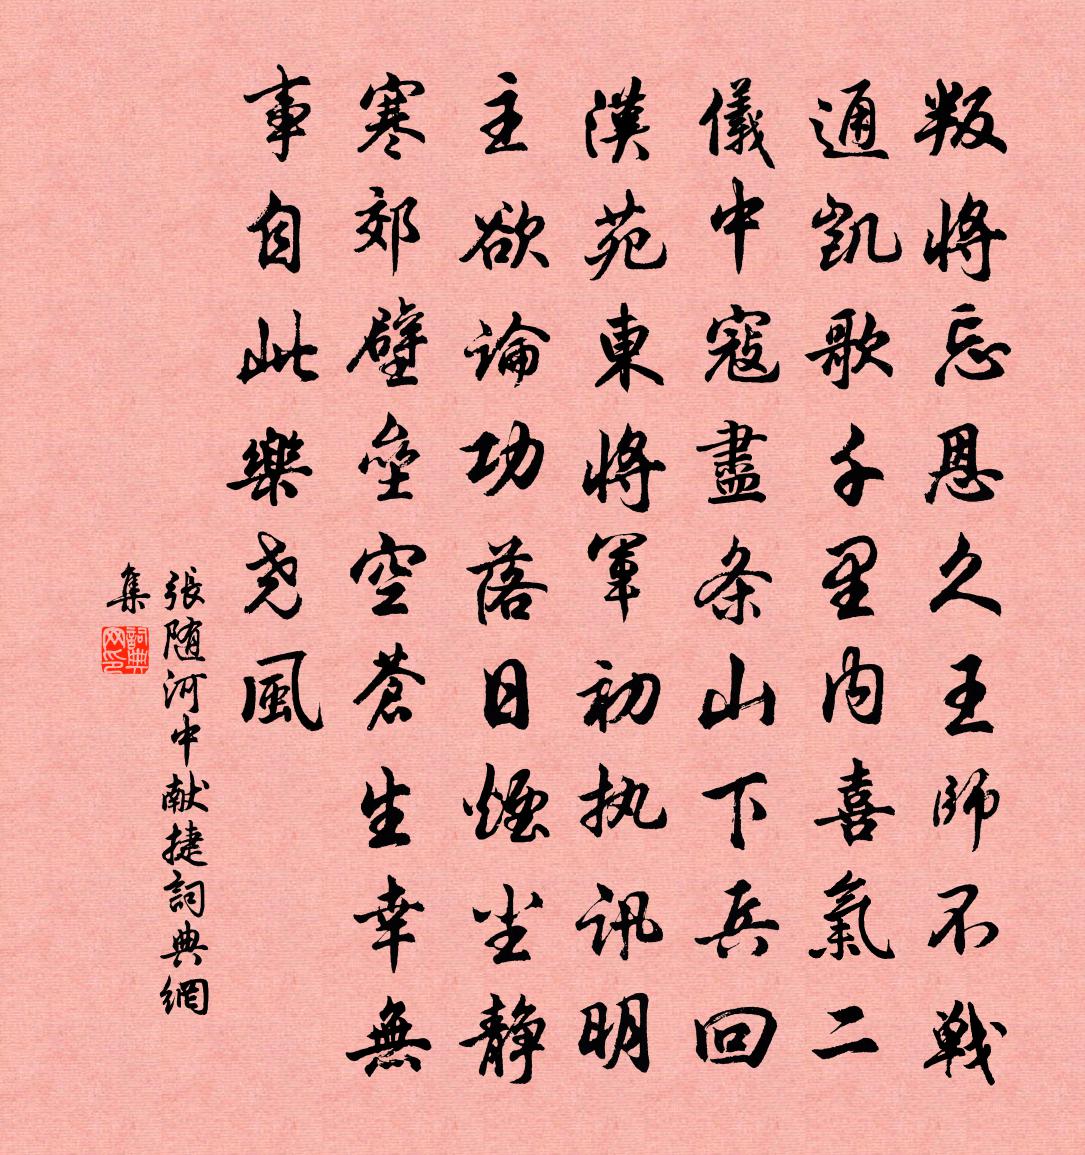 叛將忘恩久王師不戰
通凱歌千里內喜氣二
儀中寇盡条山下兵回
漢苑東將軍初执訊明
主欲論功落日煙尘靜
寒郊壁壘空蒼生幸無
事自此樂尧風
張随河中献捷詞典網
集
詞典
网印